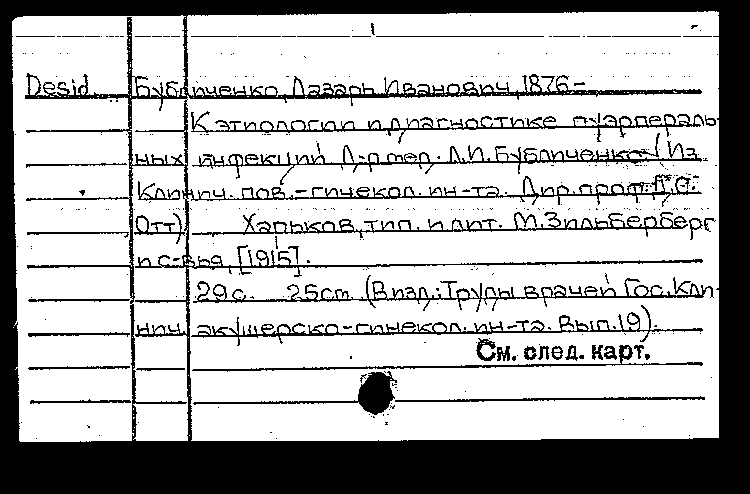 Desid. Бубличенко, Лазарь Иванович, 1876-
К этиологии и диагностике пуэрпераль-
ных инфекций Д-р мед. Л.И. Бубличенко (Из
Клинич. пов.-гинекол. ин-та. Дир. проф. Д.О.
Отт) Харьков, тип. и лит. М. Зильберберг
и с-вья, [1915].
29 с. 25 см. (В изд.: Труды врачей Гос. Кли-
нич. акушерско-гинекол. ин-та. Вып. 19).
См. след. карт.